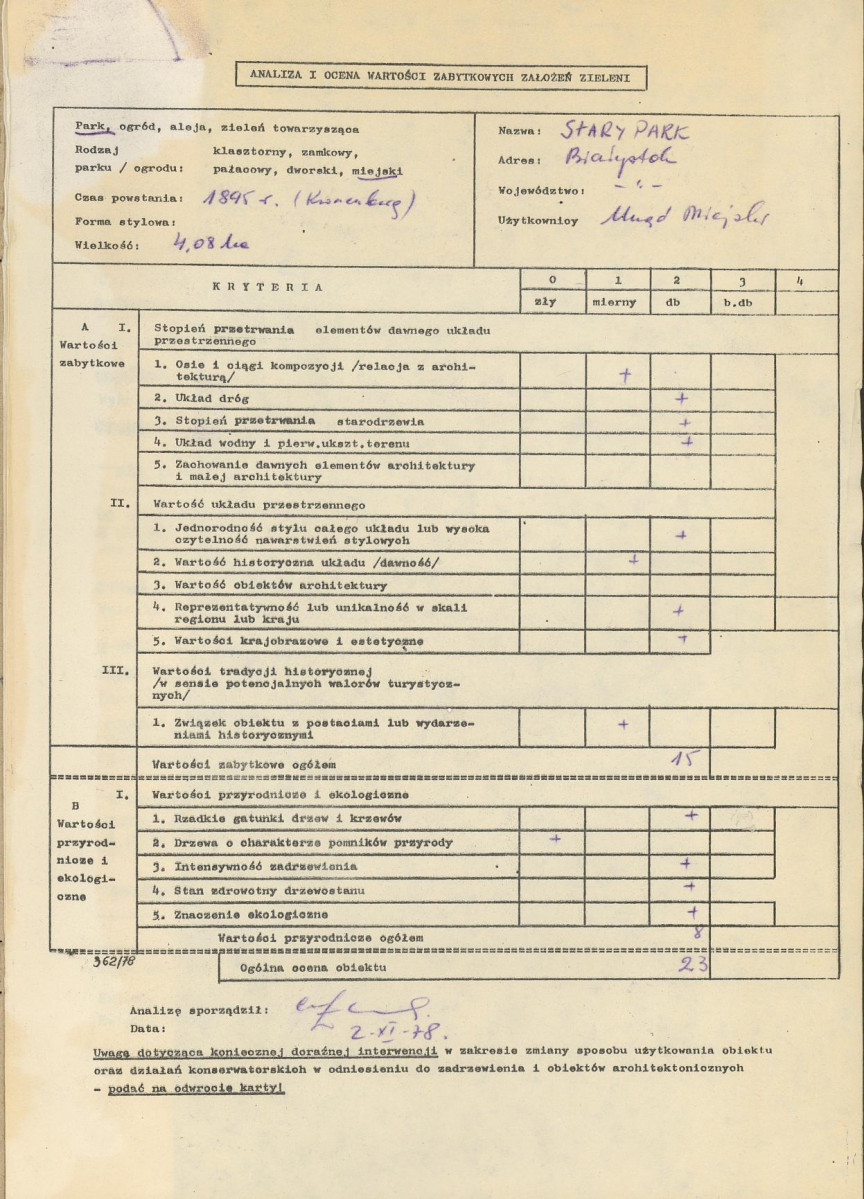 ANALIZA I OCENA WARTOŚCI ZABYTKOWYCH ZAŁOŻEŃ ZIELENI
Park, ogród, aleja, zieleń towarzysząca
Rodzaj klasztorny, zamkowy,
parku / ogrodu: pałacowy, dworski, miejski
Czas powstania: 1895 r. (Kronenberg)
Forma stylowa:
Wielkość: 4,08 ha
Nazwa: STARY PARK
Adres: Białystok
Województwo: - " -
Użytkownicy Urząd Miejski
KRYTERIA
0 1 2 3 4
zły mierny db b.db
A I. Stopień przetrwania elementów dawnego układu
Wartości przestrzennego
zabytkowe
1. Osie i ciągi kompozycji /relacja z archi-
tekturą/ +
2. Układ dróg +
3. Stopień przetrwania starodrzewia +
4. Układ wodny i pierw.ukszt.terenu +
5. Zachowanie dawnych elementów architektury
i małej architektury
II. Wartość układu przestrzennego
1. Jednorodność stylu całego układu lub wysoka
czytelność nawarstwień stylowych +
2. Wartość historyczna układu /dawność/ +
3. Wartość obiektów architektury
4. Reprezentatywność lub unikalność w skali
regionu lub kraju +
5. Wartości krajobrazowe i estetyczne +
III. Wartości tradycji historycznej
/w sensie potencjalnych walorów turystycz-
nych/
1. Związek obiektu z postaciami lub wydarze-
niami historycznymi +
Wartości zabytkowe ogółem 15
B I. Wartości przyrodnicze i ekologiczne
Wartości
przyrod-
nicze i
ekologi-
czne
1. Rzadkie gatunki drzew i krzewów +
2. Drzewa o charakterze pomników przyrody +
3. Intensywność zadrzewienia +
4. Stan zdrowotny drzewostanu +
5. Znaczenie ekologiczne +
Wartości przyrodnicze ogółem 8
362/78
Ogólna ocena obiektu 23
Analizę sporządził:
Data: 2-XI-78.
Uwagę dotyczącą koniecznej doraźnej interwencji w zakresie zmiany sposobu użytkowania obiektu
oraz działań konserwatorskich w odniesieniu do zadrzewienia i obiektów architektonicznych
- podać na odwrocie karty!